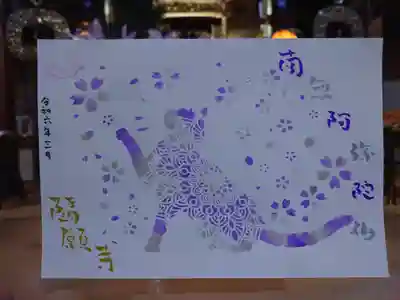 南無阿弥陀仏
令和六年三月
願寺